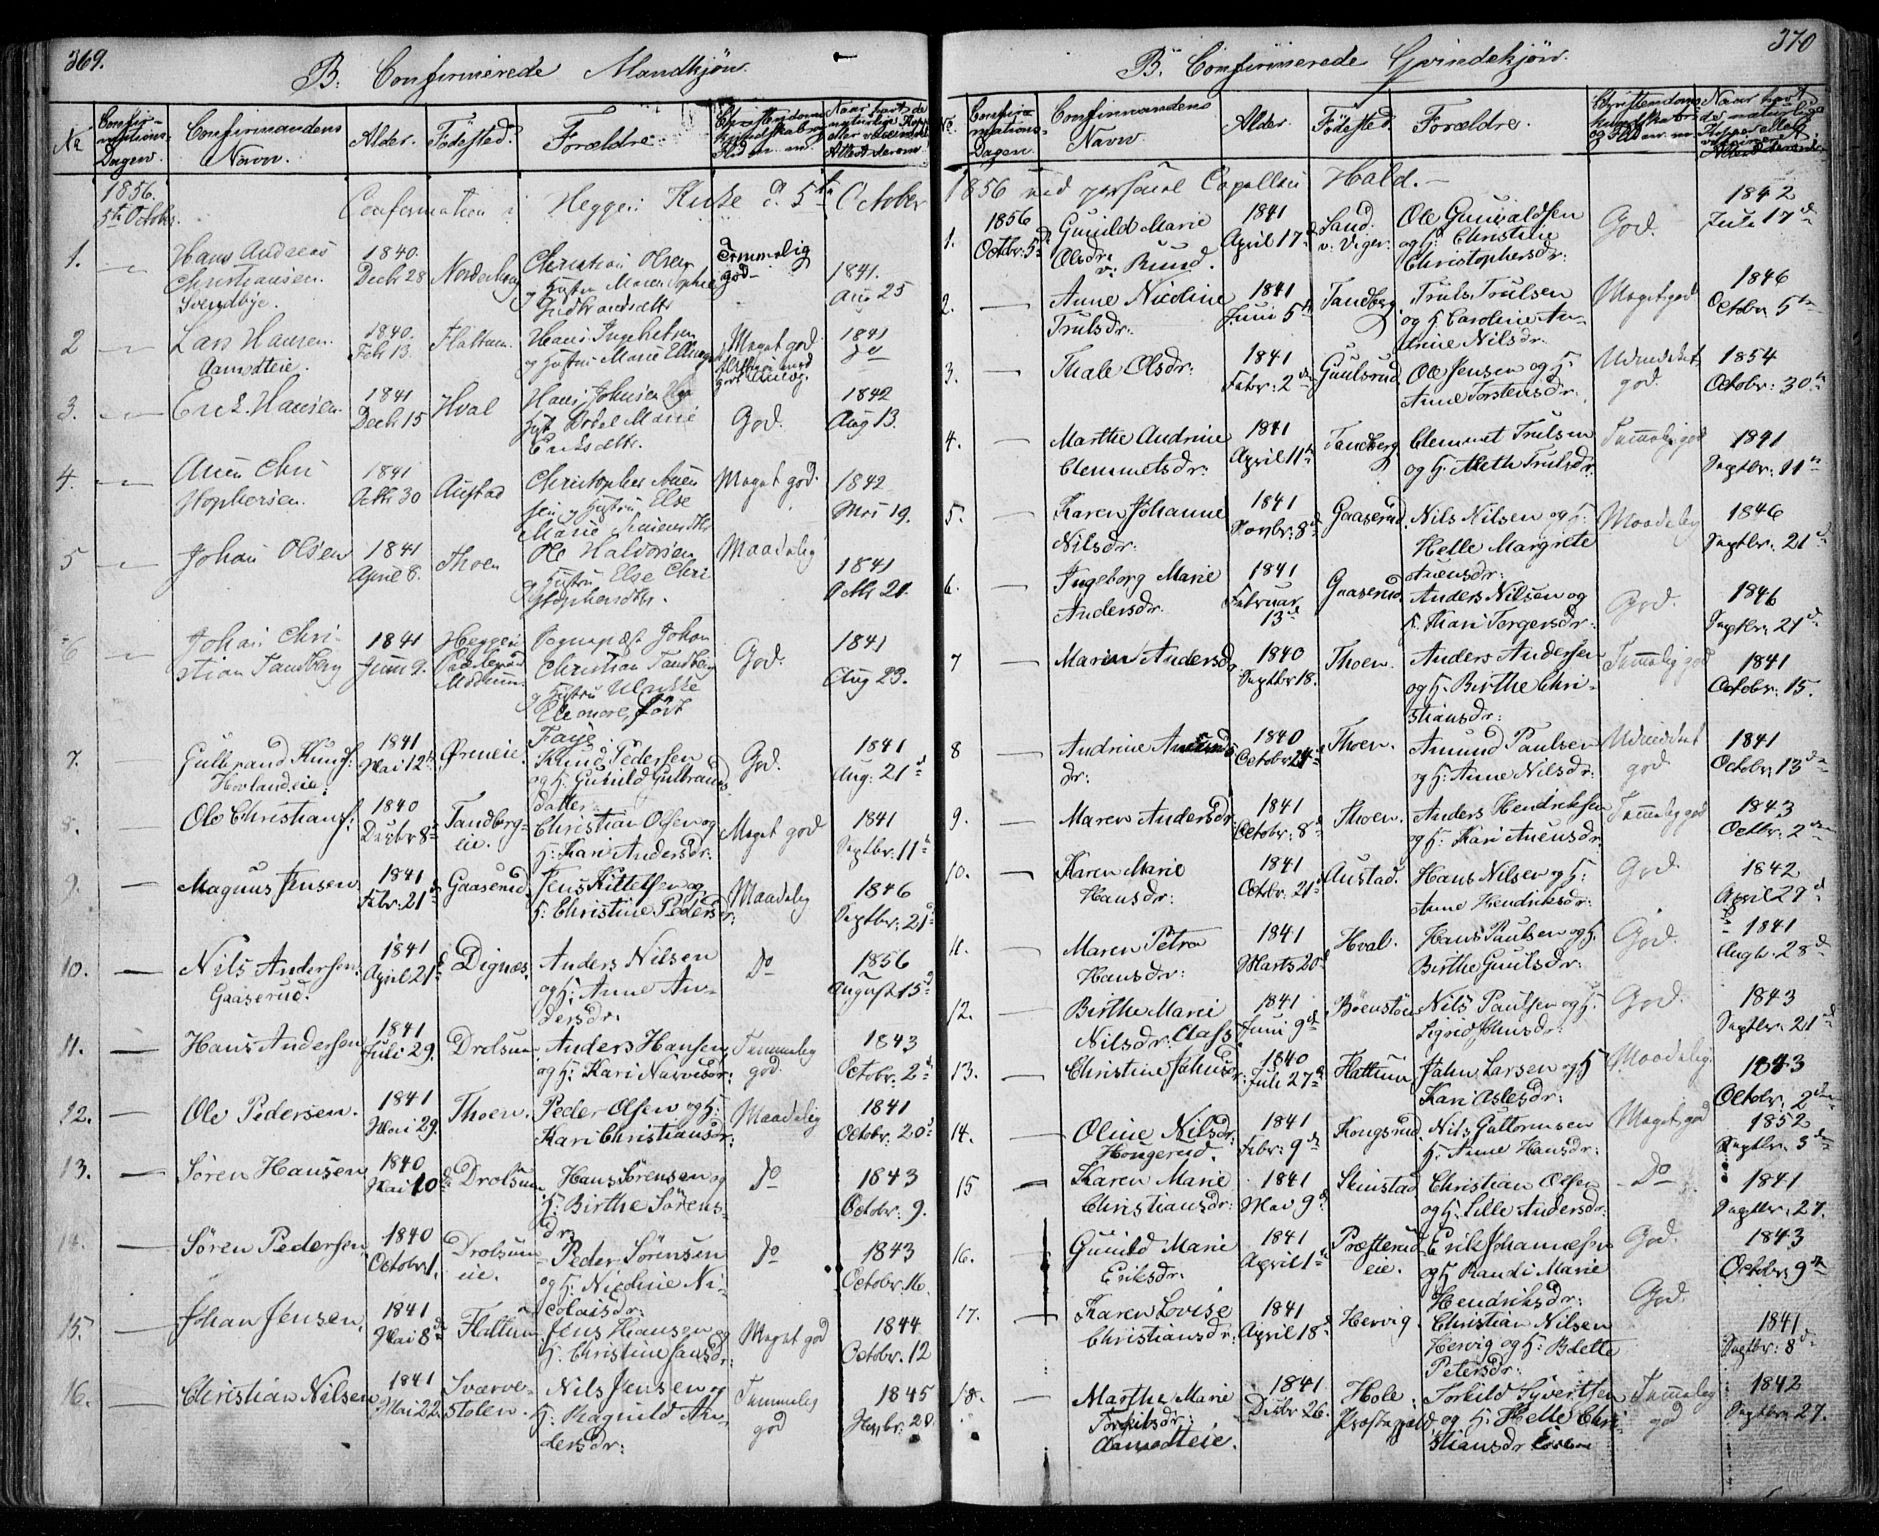 369.
B. Confirmerede Mandkjøn.
No
Confirmations-Dagen.
Confirmandens Navn.
Alder.
Fødested.
Forældre.
Christendoms Kundskab og Flid m. m.
Naar havt de naturlige Kopper eller vaccineret Attest derom.
1856. 5te Octobr. Confirmation i Heggen Kirke d. 5te October
1. Hans Andreas Christiansen. Svendbye. 1840. Decbr 28 Christian Olsen og Hustru Maren Sophie Temmelig god 1841. Aug 25
2 Lars Hansen. Aamodteie. 1840. Febr 13. Flattum. Hans Ingebretsen og Hustru Marie Meget god 1841
3. Erik Hansen 1841 Decbr 15 Hval Hans Johnsen og Hust Bodel Marie Eriksdtr. God. 1842 Aug 13.
4. Auen Christophersen. 1841 Octbr 30 Austad Christopher Auensen og Hustru Else Marie Meget god. 1842 19.
5 Johan Olsen 1841 April 8. Thoen Ole Halvorsen og Hustru Else Christophersdtr. Maadelig 1841 Octbr 21.
6 Johan Christian Tandberg 1841 Juni 9. Heggen Modum. Sognepræst Johan Christian Tandberg og Hustru Ulrikke Eleonore, født Faye. God. 1841 Aug 23.
7. Gulbrand Knuds: Hovlandeie. 1841 Mai 12te Ørneeie. Knud Pedersen og H: Gunild Gulbrandsdatter God. 1841 Aug: 21d
8. Ole Christians: 1840 Decbr 8d Tandberg-eie. Christian Olsen og H: Kari Andersdr. Meget god 1841 Septbr. 11te
9. Magnus Jensen 1841 Febr. 21d Gaaserud Jens Kittelsen og H: Christine Pedersdr: Maadelig 1846 Septbr. 21d
10. Nils Andersen Gaaserud. 1841 April 21d Dignæs. Anders Nilsen og H: Anne Andersdr. Do 1856 August 15d
11. Hans Andersen 1841 Juli 29. Drolsum Anders Hansen og H: Kari Narvesdr: Temmelig god. 1843 Octobr. 2d
12. Ole Pedersen. 1841 Mai 29. Thoen. Peder Olsen og H: Kari Christiansdr: Maadelig 1841 Octobr. 20d
13. Søren Hansen 1840 Mai 10d Drolsum Hans Sørensen og H: Birthe Sørensdr. Do 1843 Octobr. 9.
14. Søren Pedersen 1840 Octobr 1. Drolsumeie. Peder Sørensen og H: Nicoline Nicolaisdr. Do 1843 Octobr 16.
15. Johan Jensen, 1841 Mai 8d Flattum Jens Hansen og H: Christine Jansdr: Meget god 1844 Octobr. 12
16. Christian Nilsen, 1841 Mai 22. Sværvestolen. Nils Jensen og H: Ragnild Andersdr: Temmelig god 1845 28.
370
B. Confirmerede Qvindekjøn.
No.
Confirmations-Dagen.
Confirmandens Navn
Alder.
Fødested.
Forældre.
Christendoms Kundskaber og Flid m. m.
Naar havt de naturlige Kopper eller vaccineret Attest derom.
1856 ved personel Capellan Hald.
1. 1856 Octbr. 5d Gunild Marie Olsdr. v. Rund. 1841 April 17d Sand v. Viger. Ole Gunvaldsen og H: Christine Christophersdr: God. 1842 Juli 17d
2. Anne Nicoline Trulsdr: 1841 Juni 5te Tandberg Truls Trulsen og H: Caroline Antrine Nilsdr. Meget god 1846 Octobr 5te
3. Thale Olsdr: 1841 Febr: 2d Guulsrud Ole Jensen og H: Anne Torstensdr. Udmærket god. 1854 Octobr: 30te
4. Marthe Andrine Clemmetsdr: 1841 April 11te Tandberg Clemmet Trulsen og H: Aleth Trulsdr: Temmelig god 1841 Septbr. 11te
5. Karen Johanne Nilsdr: 1841 Novbr: 8d Gaaserud. Nils Nilsen og H: Helle Margrete Auensdr: Maadelig 1846 Septbr: 21d
6. Ingeborg Marie Andersdr. 1841 Februar 13d Gaaserud Anders Nilsen og H. Kari Torgersdr: God. 1846 Septbr. 21d
7 Maren Andersdr 1840 Septbr 18. Thoen. Anders Andersen og H. Birthe Christiansdr: Temmelig god 1841 Octobr. 15.
8 Andrine Amundsdr: 1840 Octobr 24d Thoen. Amund Paulsen og H: Anne Nilsdr: Udmærket god 1841 Octobr: 13d
9. Maren Andersdr 1841 Octobr. 8d Thoen. Anders Hendriksen og H: Kari Auensdr. Temmelig god 1843 Octbr. 2den
10. Karen Marie Hansdr: 1841 Octbr. 21d Austad. Hans Nilsen og H: Anne Hendriksdr: God. 1842 April 29d
11. Maren Petra Hansdr: 1841 Marts 20d Hval. Hans Paulsen og H. Birthe Guulsdr: God. 1841 Augb. 28d
12. Birthe Marie Nilsdr. 1841 Juni 9d Nils Paulsen og H: Sigrid Johnsdr: God. 1843 Septbr. 21d
13. Christine Johnsdr: 1840 Juli 27d Flattum John Larsen og H Kari Aslesdr: Maadelig 1843 Octobr. 2den
14. Oline Nilsdr: Hongerud. 1841 Febr: 9d Kongsrud. Nils Guttormsen H: Anne Hansdr: Meget god 1852 Septbr. 3d
15 Karen Marie Christiansdr: 1841 9d Skinstad Christian Olsen og H. Lille Andersdr: Do 1841 Septbr. 27.
16. Gunild Marie Eriksdr. 1841 April 1te Præsterud-eie. Erik Johannesen og H Randi Marie Hendriksdr: God. 1843 Octobr. 9de
17. Karen Lovise Christiansdr: 1841 April 18d Hervig. Christian Nilsen Hervig og H: Bolette Petersdr: God. 1841 Septbr. 8d
18. Marthe Marie Torkildsdr: Aamodteie. 1841 Decbr 26. Hole Præstegjæld. Torkild Syvertsen og H: Helle Christiansdr Temmelig god 1842 Septbr. 27.